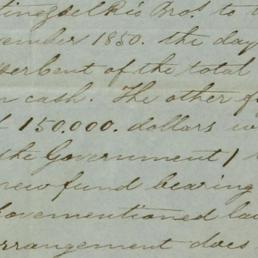 to
ember 1850. the day
per Cent of the total
n cash. The other f
150.000. dollars w
the Government
new fund bearing
bovementioned la
rrangement does